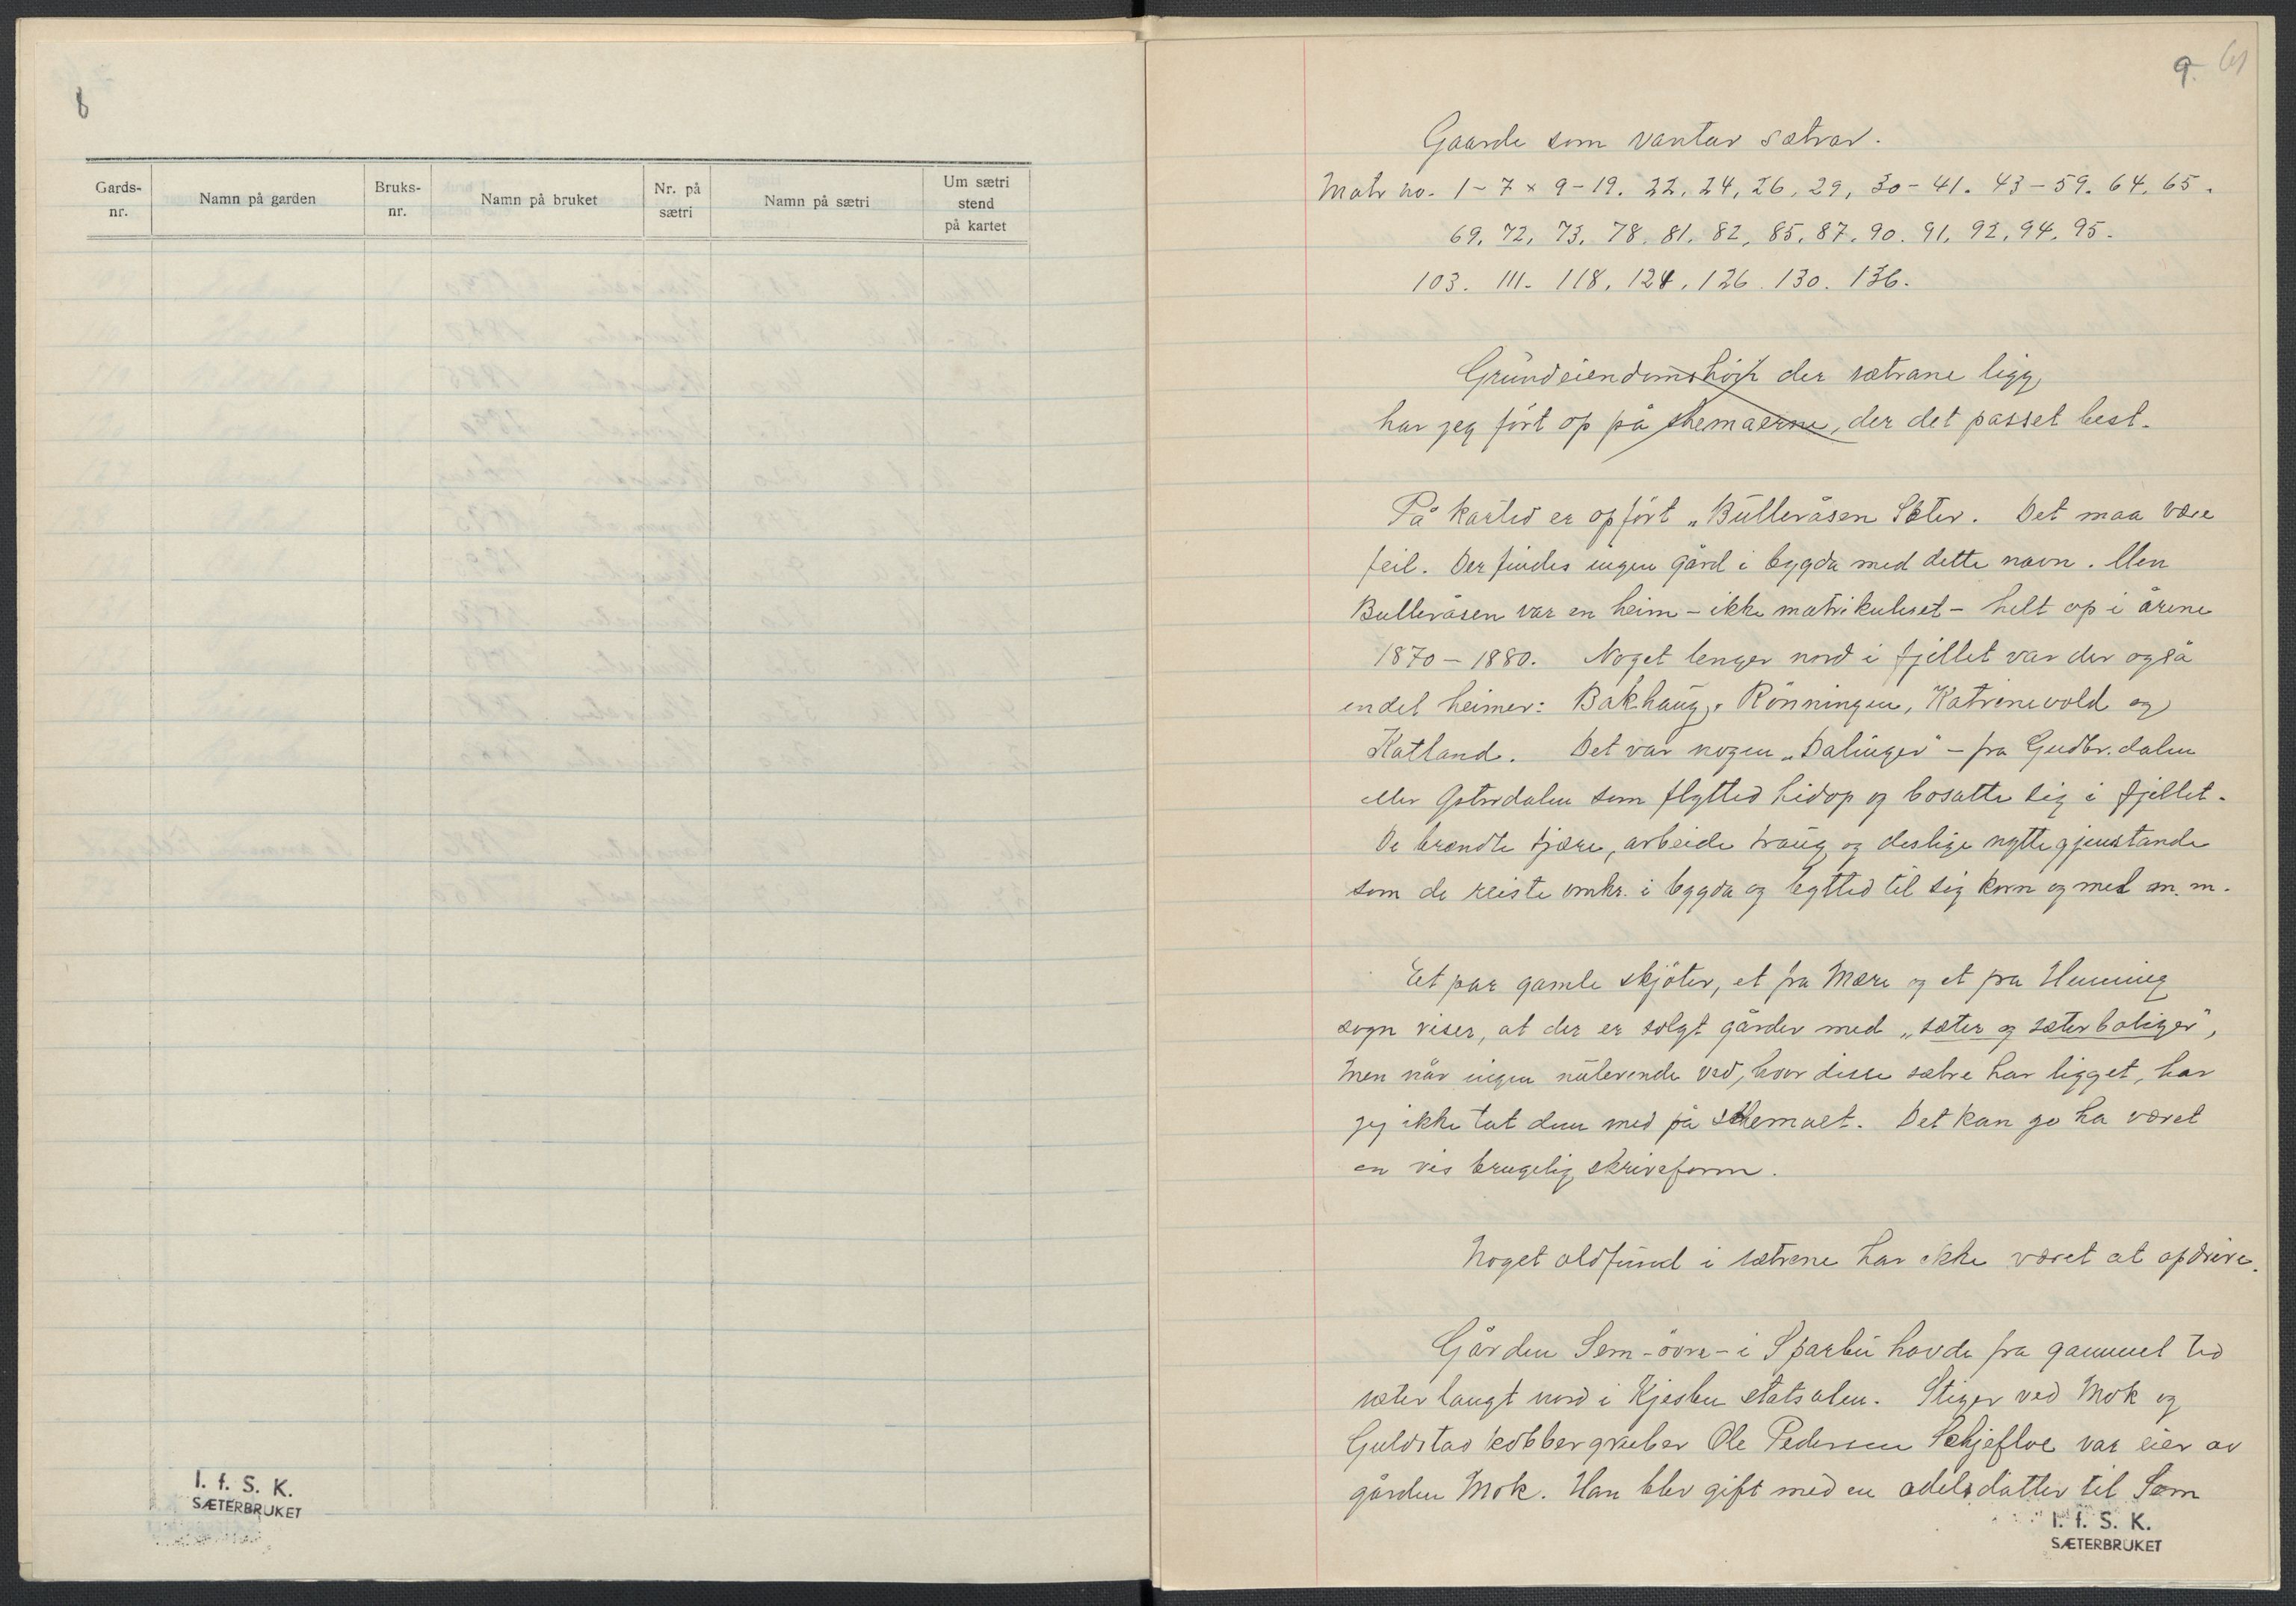 8
Gards-nr.
Namn på garden
Bruks-nr.
Namn på bruket
Nr. på sætri
Namn på sætri
Um sætri stend på kartet
I. f. S. K.
SÆTERBRUKET
9. 61
Gaarde som vantar sætrar.
Matr no. 1-7 x 9-19. 22, 24, 26, 29, 30-41. 43-59. 64, 65.
69, 72, 73, 78, 81, 82, 85, 87, 90. 91, 92, 94, 95.
103. 111. 118, 124, 126. 130. 136.
Grundeiendomshøjh der sætrane ligg,
har jeg ført op på skemaerne, der det passet best.
På kartet er opført „Bulleråsen Sæter. Det maa være
feil. Der findes ingen gård i bygda med dette navn. Men
Bulleråsen var en heim - ikke matrikuleret - helt op i årene
1870 - 1880. Noget lenger nord i fjellet var der også
endel heimer: Bakhaug, Rönningen, Katrinevold og
Katland. Det var nogen „Dalinger" - fra Gudbr.dalen
eller Østerdalen som flytted hidop og bosatte sig i fjellet.
De brændte tjære, arbeide traug og deslige nyttegjenstande
som de reiste omkr. i bygda og bytted til sig korn og mel m. m.
Et par gamle skjöter, et fra Mære og et fra Henning
sogn viser, at der er solgt gårder med „sæter og sæterboliger",
Men når ingen nulevende ved, hvor disse sætre har ligget, har
jeg ikke tat dem med på skemaet. Det kan jo ha været
en vis brugelig skriveform.
Noget oldfund i sætrene har ikke været at opdrive.
Gården Sem - övre - i Sparbu havde fra gammel tid
sæter langt nord i Kjesbu statsalm. Stiger ved Mok og
Guldstad kobbergruber Ole Pedersen Schjefloe var eier av
gården Mok. Han blev gift med en odelsdatter til Sem
I. f. S. K.
SÆTERBRUKET